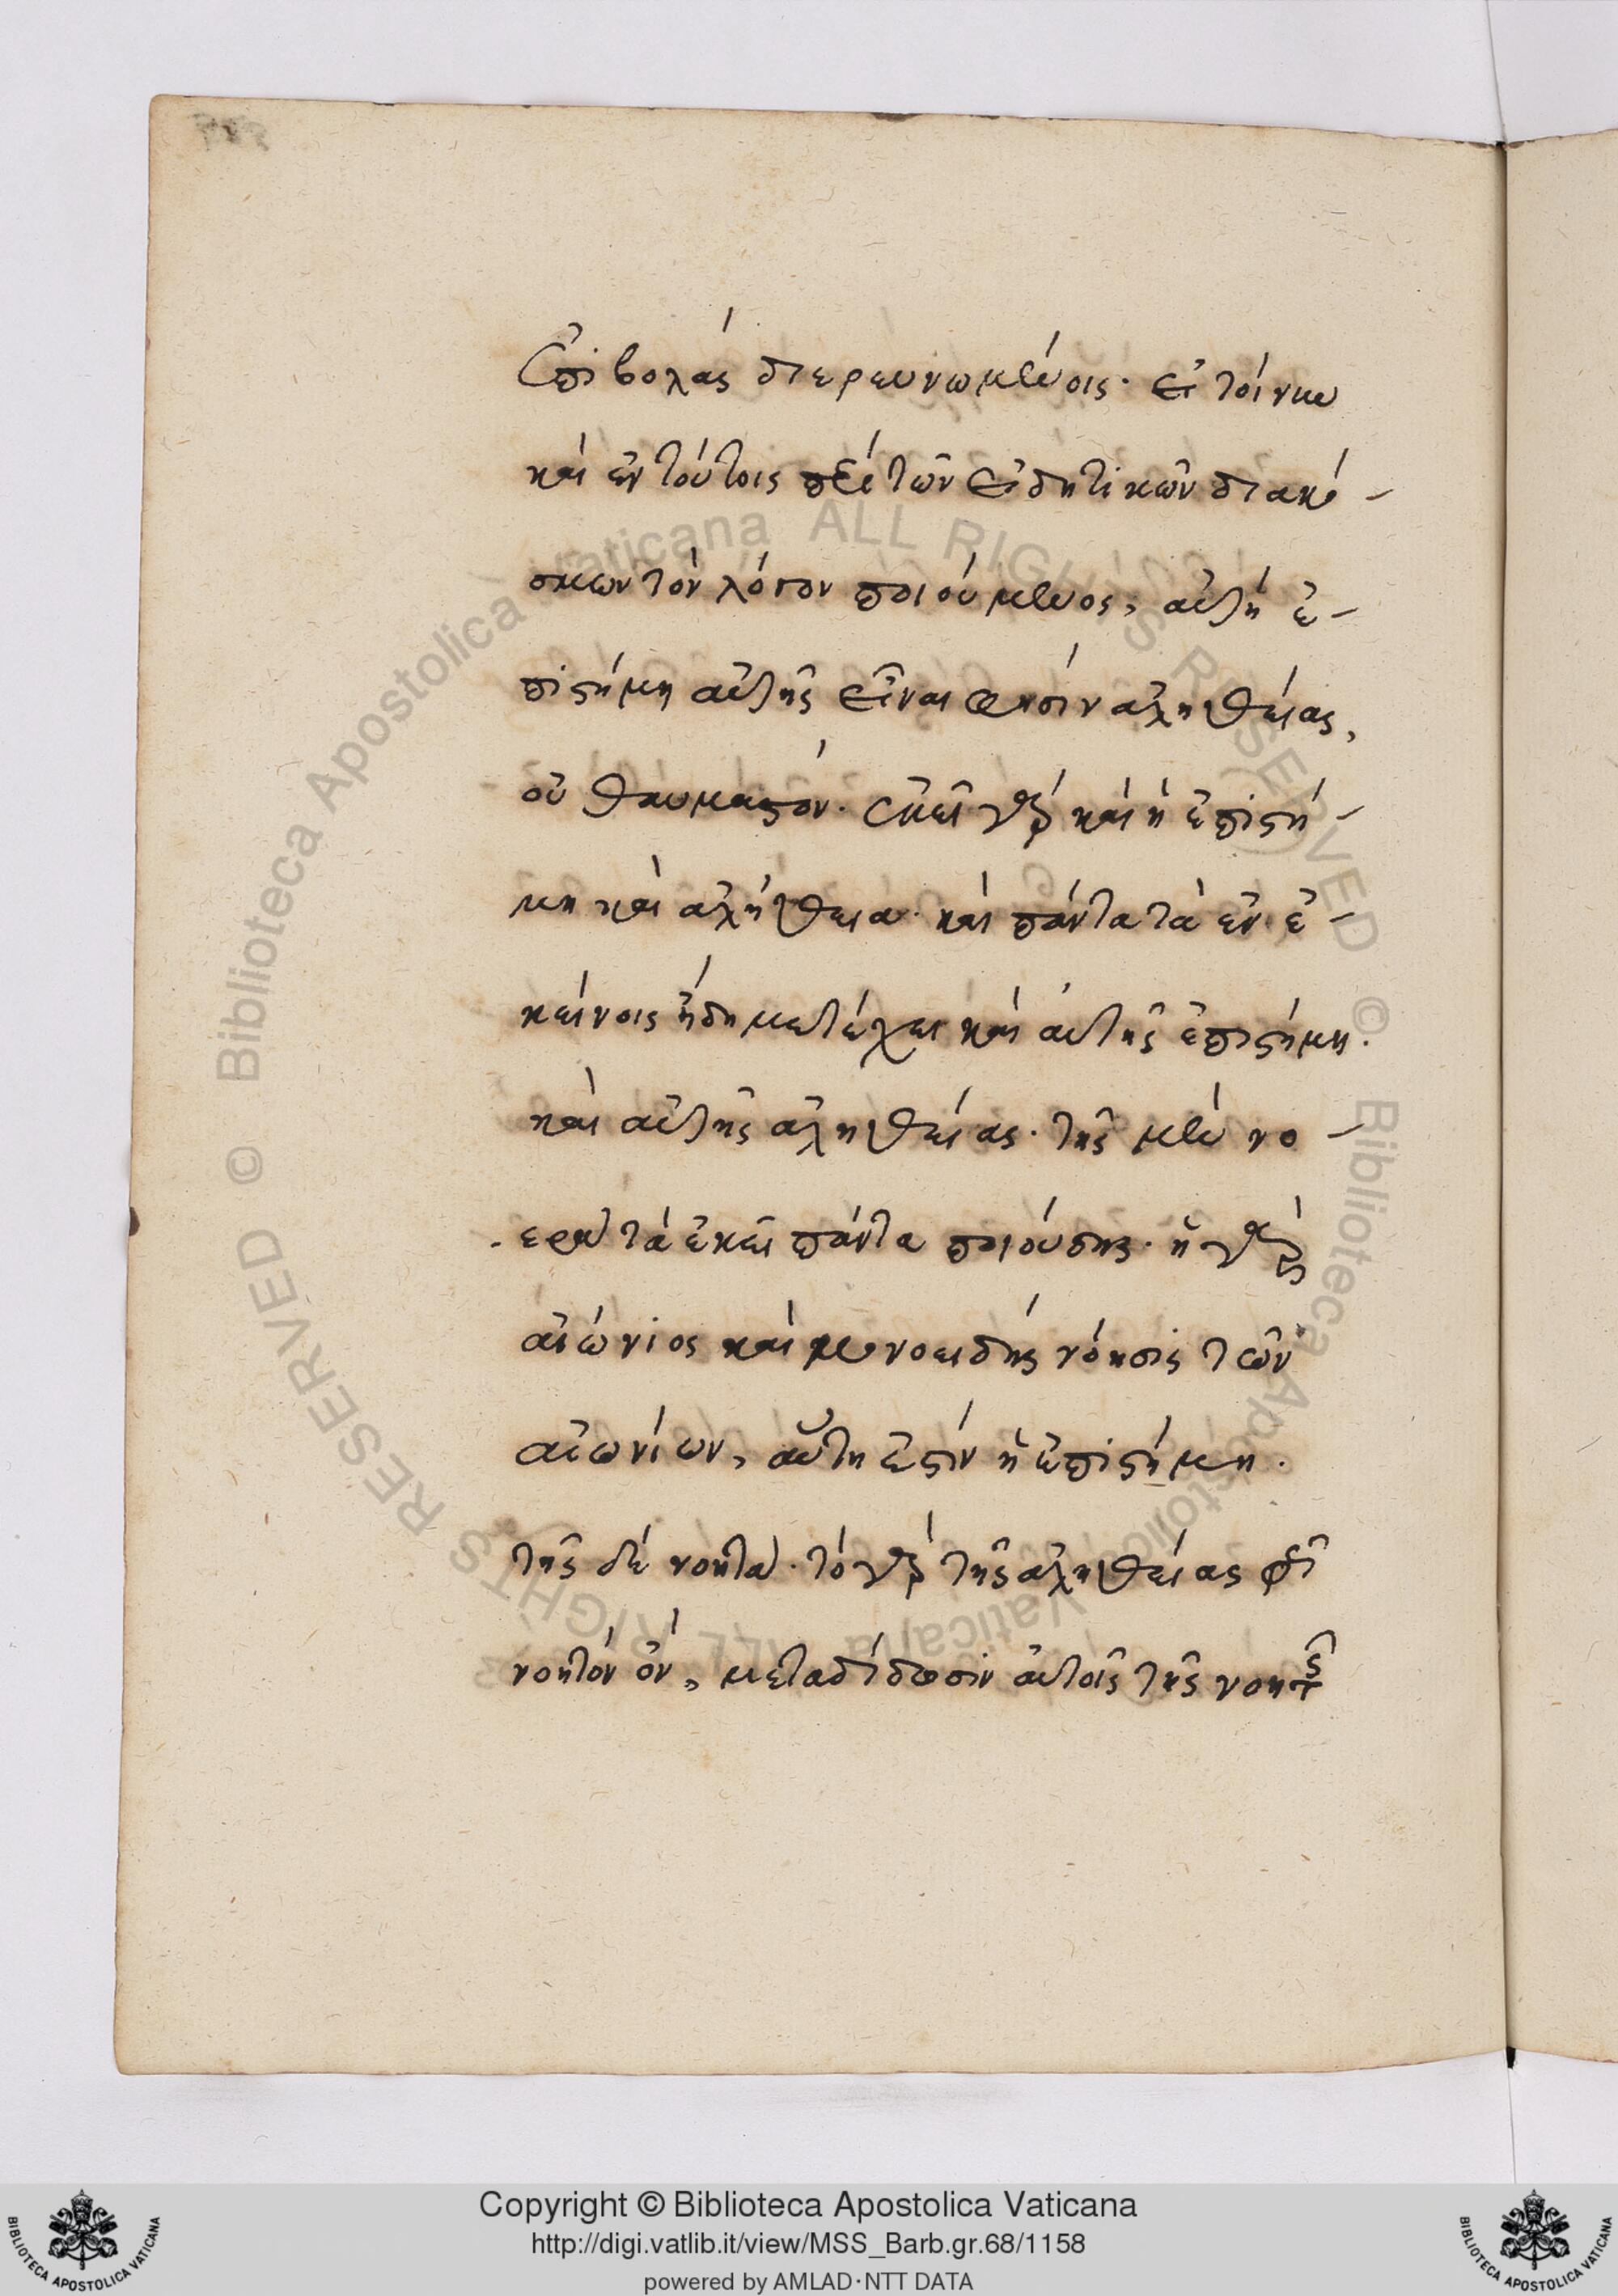 ἐπιβολὰς διερευνωμένοις· εἰ τοίνυν
καὶ ἐν τούτοις περὶ τῶν εἰδητικῶν διακό-
σμων τὸν λόγον ποιούμενος, αὐτὴ ἐ-
πιστήμη αὐτῆς εἶναι φησὶν ἀληθείας,
οὐ θαυμαστόν· ἐκεῖ γὰρ καὶ ἡ ἐπιστή-
μη καὶ ἀλήθεια· καὶ πάντα τὰ ἐν ἐ-
κείνοις ἤδη μετέχει καὶ αὐτῆς ἐπιστήμη·
καὶ αὐτῆς ἀληθείας· τῆς μὲν νο-
ερὰ τὰ ἐκεῖ πάντα ποιούσης· ἡ γὰρ
αἰώνιος καὶ μονοειδὴς νόησις τῶν
αἰωνίων, αὕτη ἐστὶν ἡ ἐπιστήμη·
τῆς δὲ νοητά· τὸ γὰρ τῆς ἀληθείας φῶς
νοητὸν ὂν, μεταδίδωσιν αὐτοῖς τῆς νοητῆς
Copyright © Biblioteca Apostolica Vaticana
http://digi.vatlib.it/view/MSS_Barb.gr.68/1158
powered by AMLAD·NTT DATA
BIBLIOTECA APOSTOLICA VATICANA
BIBLIOTECA APOSTOLICA VATICANA
© Biblioteca Apostolica Vaticana ALL RIGHTS RESERVED © Biblioteca Apostolica Vaticana ALL RIGHTS RESERVED